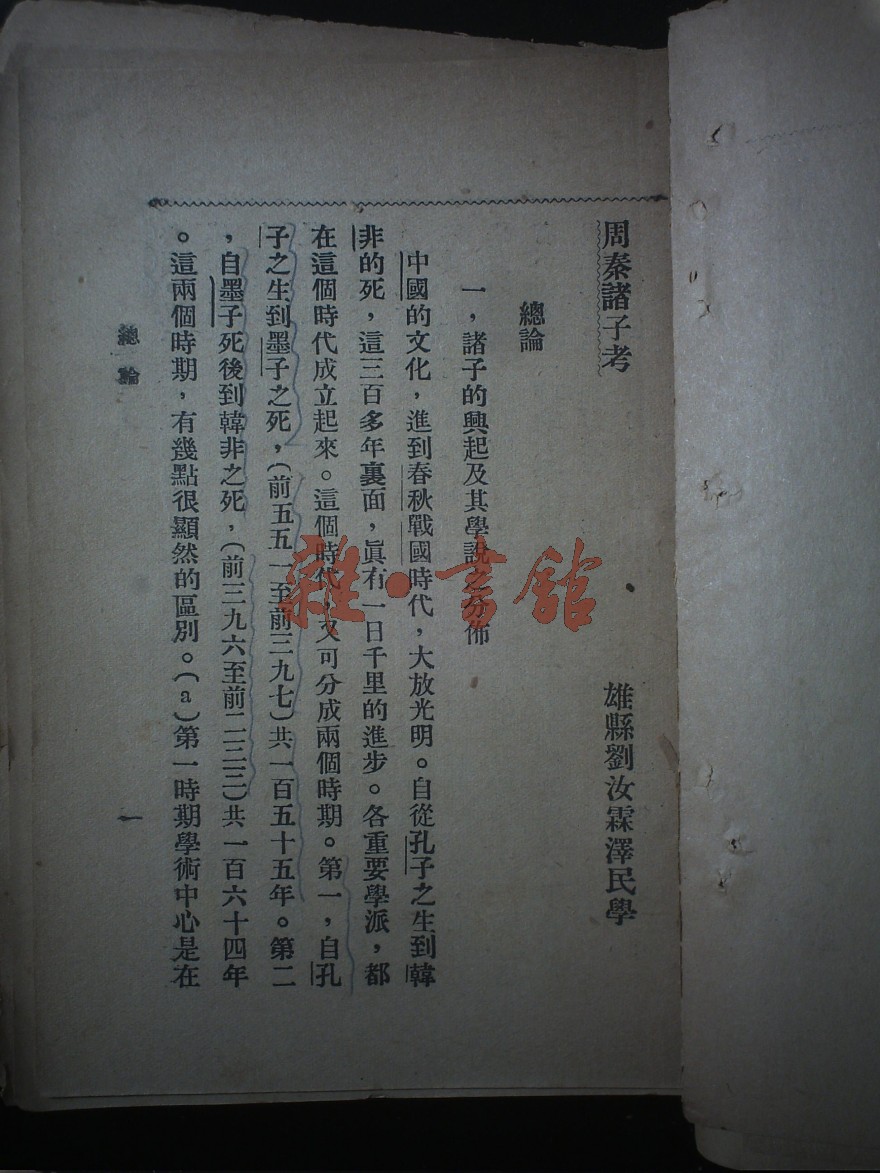 周秦諸子考
雄縣劉汝霖澤民學
總論
一，諸子的興起及其學說之分佈
中國的文化，進到春秋戰國時代，大放光明。自從孔子之生到韓
非的死，這三百多年裏面，眞有一日千里的進步。各重要學派，都
在這個時代成立起來。這個時代，又可分成兩個時期。第一，自孔
子之生到墨子之死，（前五五一至前三九七）共一百五十五年。第二
，自墨子死後到韓非之死，（前三九六至前二三三）共一百六十四年
。這兩個時期，有幾點很顯然的區別。（a）第一時期學術中心是在
總論
一
雜·書館